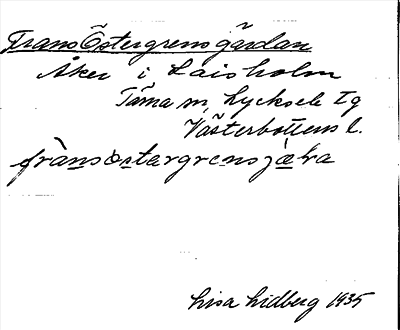 Frans Östergrensgärdan
Åker i Laisholm
Tärna sn, Lycksele tg
Västerbottens l.
frànsöstərgrensjæḷra
Lisa Lidberg 1935